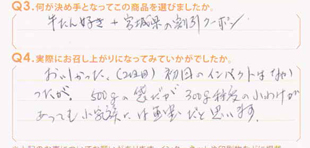 Q3. 何が決め手となってこの商品を選びましたか。
牛たん好き + 宮城県の割引クーポン
Q4. 実際にお召し上がりになってみていかがでしたか。
おいしかった。(2回目) 初回のインパクトはなかっ
たが。 500gの袋だが 300g程度の小わけが
あっても小家族には重宝だと思います。